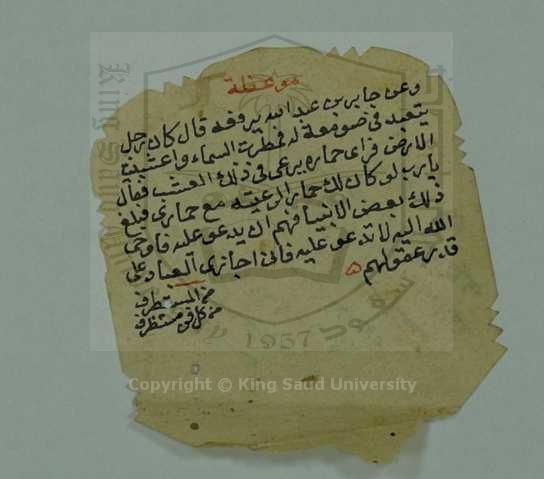 موعظة
وعن جابر بن عبد الله يرفعه قال كان رجل
يتعبد في صومعة له فمطرت السماء واعشبت
الارض فراى حماره يرعى في ذلك العشب فقال
يارب لو كان لك حمار لرعيته مع حماري فبلغ
ذلك بعض الانبيا فهم ان يدعو عليه فاوحى
الله اليه لا تدعو عليه فاني اجازي العباد على
قدر عقولهم
من المستطرف
من كل فن مستظرف
King Saud
1957
Copyright © King Saud University